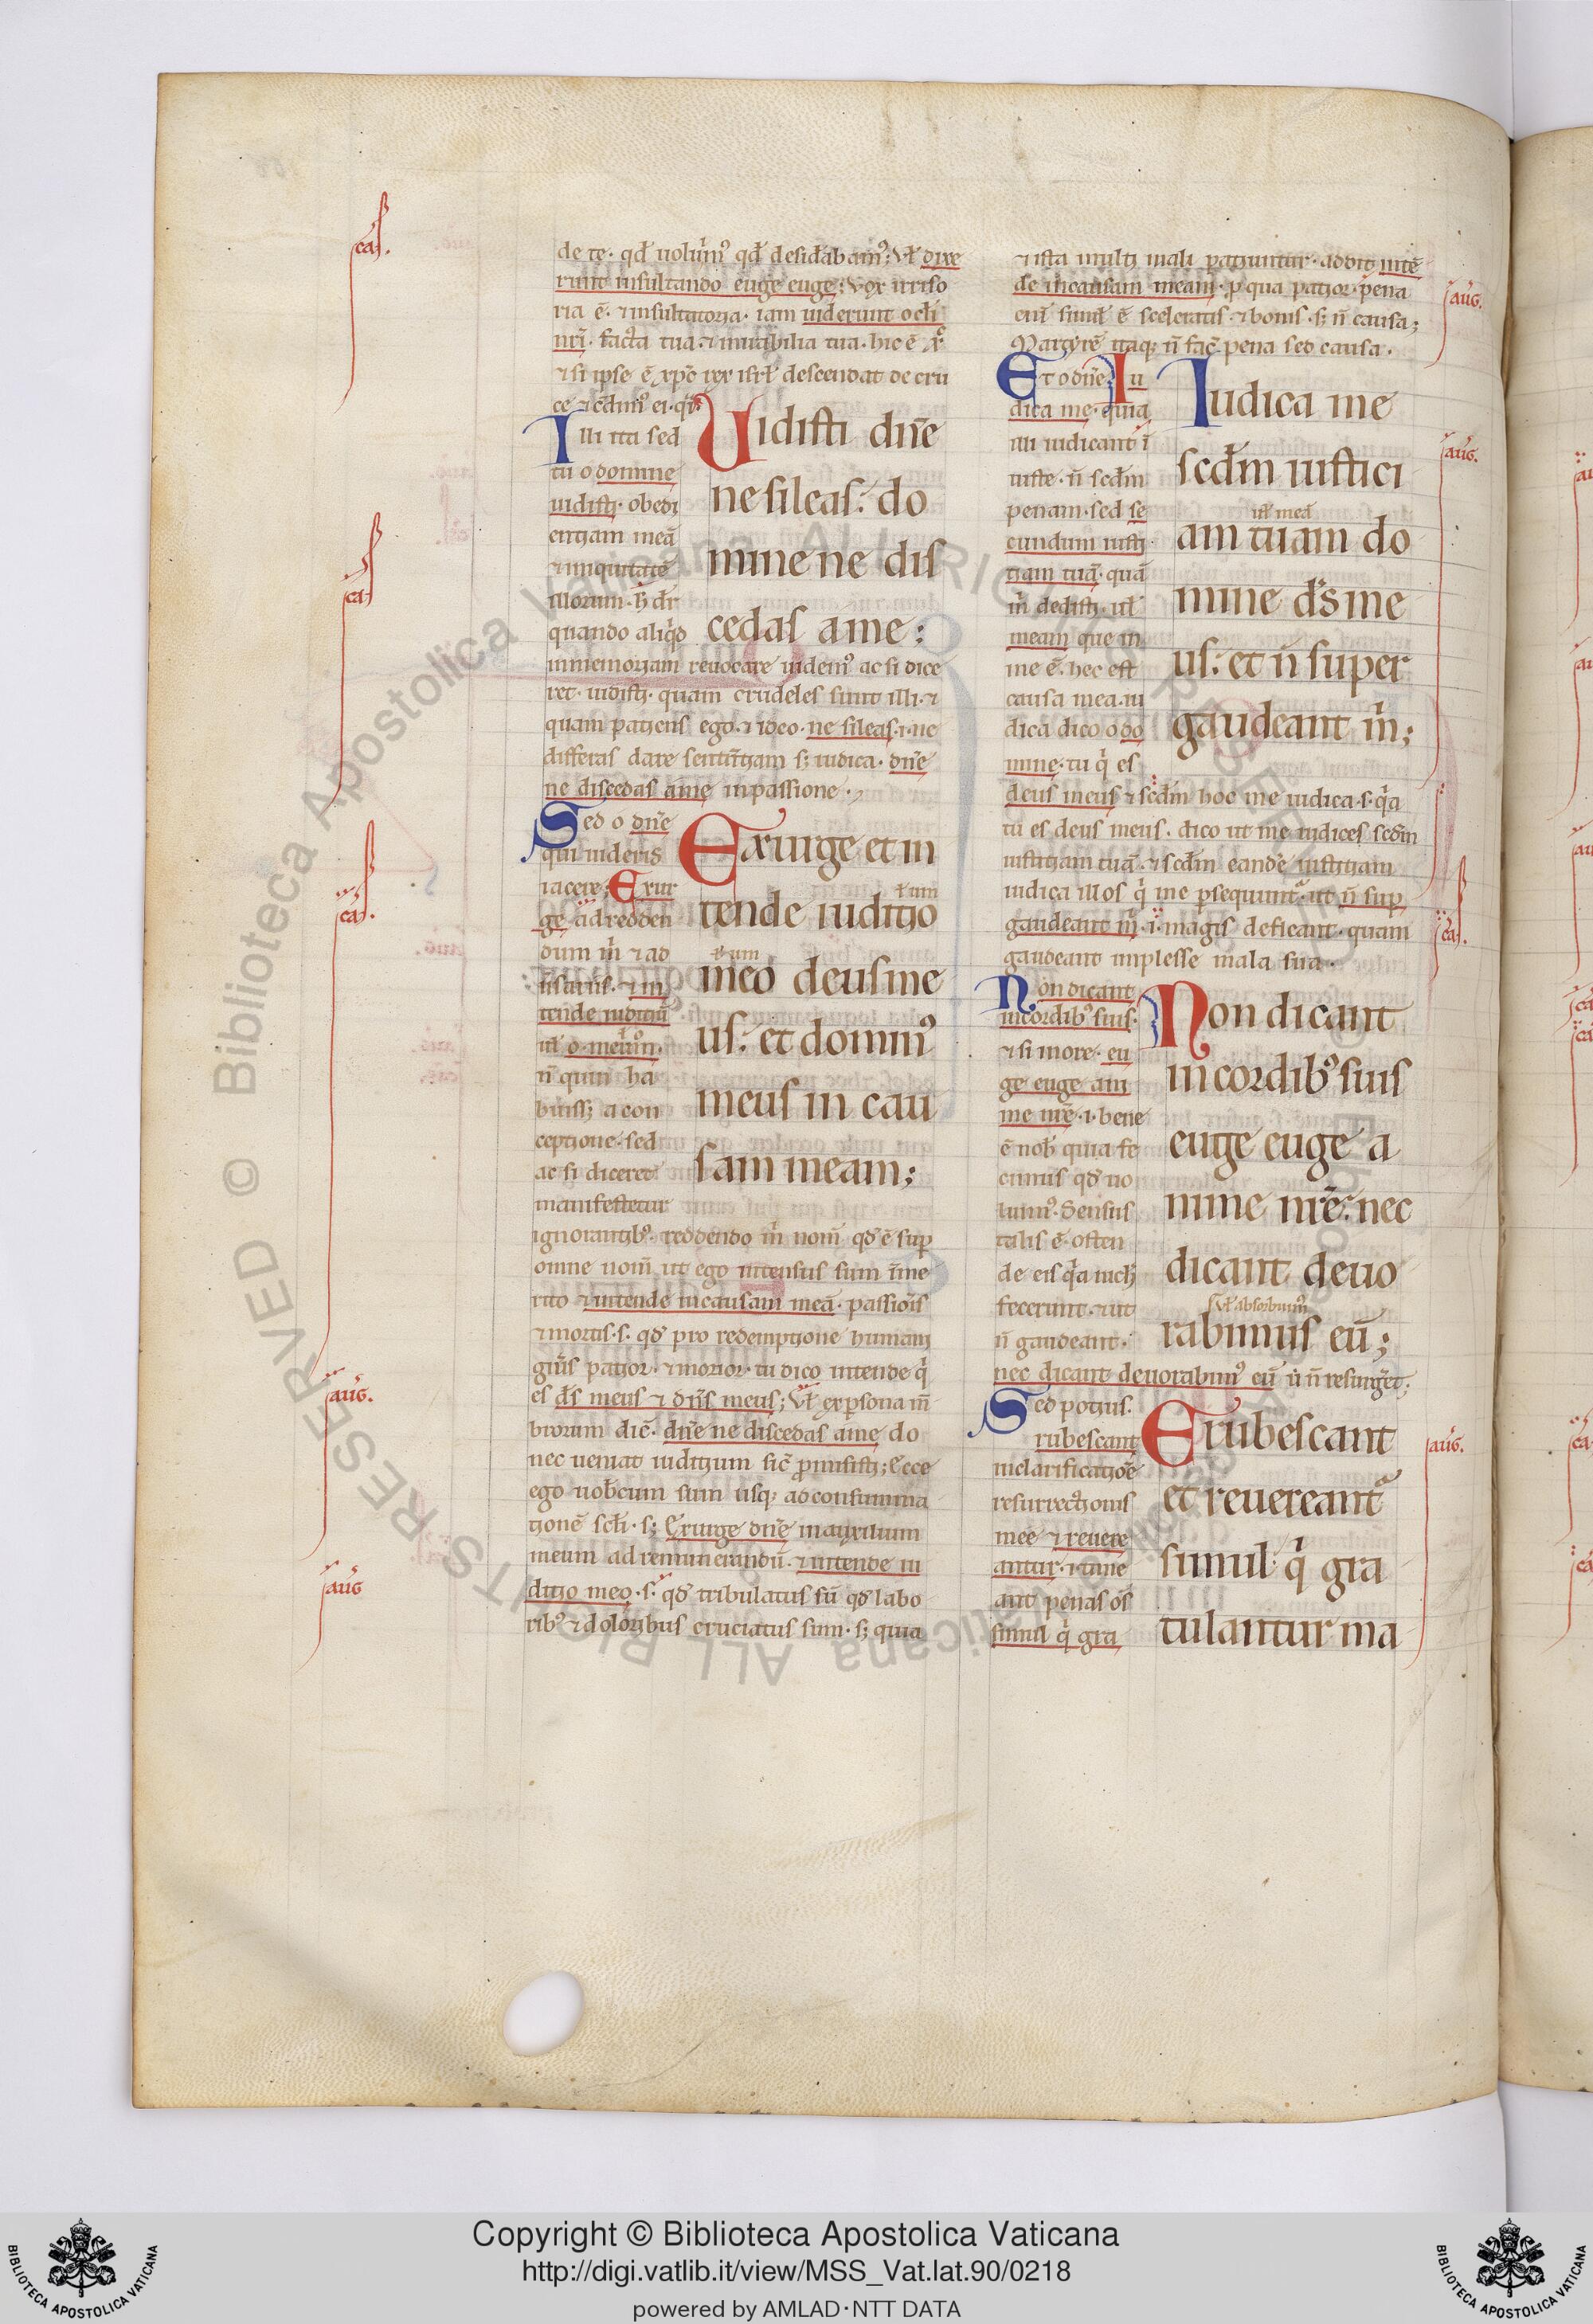 de te. qđ uoluı̄mꝰ qđ desiđabamꝰ; Vł dixe
runt insultando euge euge; Vox irriso
ria ē. ⁊ insultatoria. iam uiderunt ocłi
nr̄i. facta tua ⁊ mirabilia tua. hic ē
⁊ si ipse ē xp̄c rex isrł descendat de cru
ce ⁊ cēdimꝰ ei.
Illi ita sed
tu o domine
uidisti. obedi
entiam meā
⁊ iniquitatē
illorum. h̄ dr̄
quando aliqd
Uidisti dn̄e
ne sileas: do
mine ne dis
cedas a me:
in memoriam reuocare uidemꝰ ac si dice
ret. uidisti. quam crudeles sunt illi. ⁊
quam patiens ego. ⁊ ideo. ne sileas .i. ne
differas dare sententiam s; iudica. dn̄e
ne discedas a me in passione.
Sed o dn̄e
qui uideris
iacere; Exur
ge ad redden
dum m̄ ⁊ ad
⁊ in
tende iuditiū
n̄ quin ha
a con
ceptione. sed
ac si diceret
manifestetur
Exurge et in
tende iuditio
meo deus me
us: et dominꝰ
meus in cau
sam meam;
ignorantibꝰ. reddendo m̄ nom̄ qđ ē sup
omne nom̄ ut ego intensus sum
rito ⁊ intende in causam meā. passiōis
⁊ mortis .s. qđ pro redemptione humani
patior. ⁊ morior. tu dico intende q̇
es đs meus ⁊ dn̄s meus; Vł ex psona m̄
brorum dic̄. dn̄e ne discedas a me do
nec ueniat iuditium sic̄ promisisti; Ecce
ego uobcum sum usq; ad consumma
tionē scłi. s; Exurge dn̄e in auxilium
meum ad remunerandū. ⁊ intende iu
ditio meo .s. qđ tribulatus sū qđ labo
ribꝰ ⁊ doloribus cruciatus sum. s; quia
⁊ ista multi mali patiuntur. addit intē
de in causam meam. p qua patior. pena
eni simił ē sceleratis ⁊ bonis. s; n̄ causa;
Martyrē itaq; n̄ fac̄ pena sed causa.
Et o dn̄e Iu
dica me. quia
illi iudicant ī
iuste. n̄ scđm
penam. sed se
cundum iusti
tiam tuā. quā
m̄ dedisti. uł
meam que in
me ē. hec est
causa mea. iu
dica dico o do
mine. tu q̇ es
Iudica me
scđm iustici
uł meā
am tuam do
mine đs me
us: et n̄ super
gaudeant m̄;
deus meus ⁊ scđm hoc me iudica .s. qa
tu es deus meus. dico ut me iudices scđm
iustitiam tuā. ⁊ scđm eandē iustitiam
iudica illos q̇ me psequunt̄. ut n̄ sup
gaudeant m̄ .i. magis deficant. quam
gaudeant implesse mala sua.
Non dicant
in cordibꝰ suis.
⁊ si more. eu
ge euge ani
me nr̄e .i. bene
ē nob̄ quia fe
cimus qđ uo
luimꝰ. Sensus
talis ē. osten
de eis qa nich
fecerunt. ⁊ ut
n̄ gaudeant.
Non dicant
in cordibꝰ suis
euge euge a
nime nr̄e: nec
dicant deuo
uł absorbuimꝰ
rabimus eū;
nec dicant deuorabimꝰ eū n̄ resurget;
Sed potius.
rubescant
in clarificatiōe
resurrectionis
mee ⁊ reuere
antur .i. time
ant penas oms
simul q̇ gra
Erubescant
et reuereant̄
simul q̇ gra
tulantur ma
cas.
ca.
cas.
aug.
aug
aug.
aug.
cas.
aug.
Copyright © Biblioteca Apostolica Vaticana
http://digi.vatlib.it/view/MSS_Vat.lat.90/0218
powered by AMLAD·NTT DATA
BIBLIOTECA APOSTOLICA VATICANA
BIBLIOTECA APOSTOLICA VATICANA
© Biblioteca Apostolica Vaticana ALL RIGHTS RESERVED